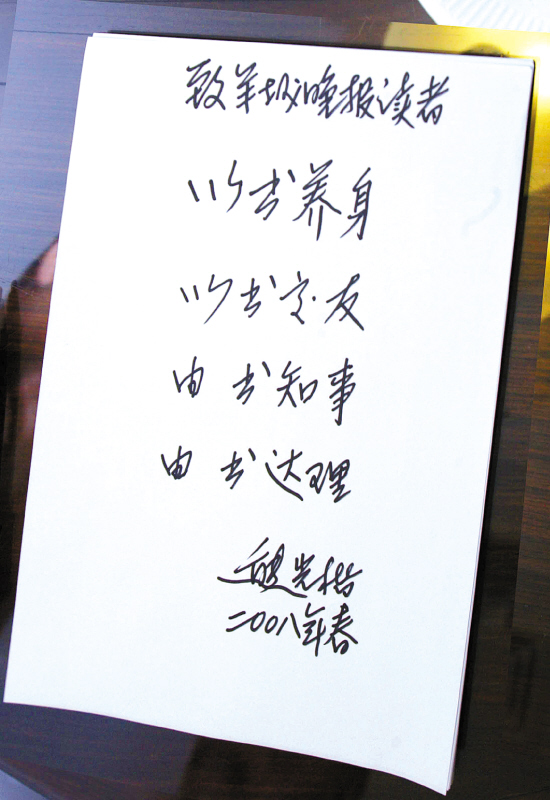 致羊城晚报读者
以书养身
以书交友
由书知事
由书达理
熊光楷
二〇〇八年春